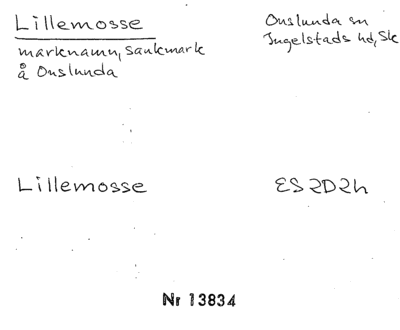 Lillemosse
Onslunda sn
Ingelstads hd, Sk
marknamn, sankmark
å Onslunda
Lillemosse
ES 2D2h
Nr 13834